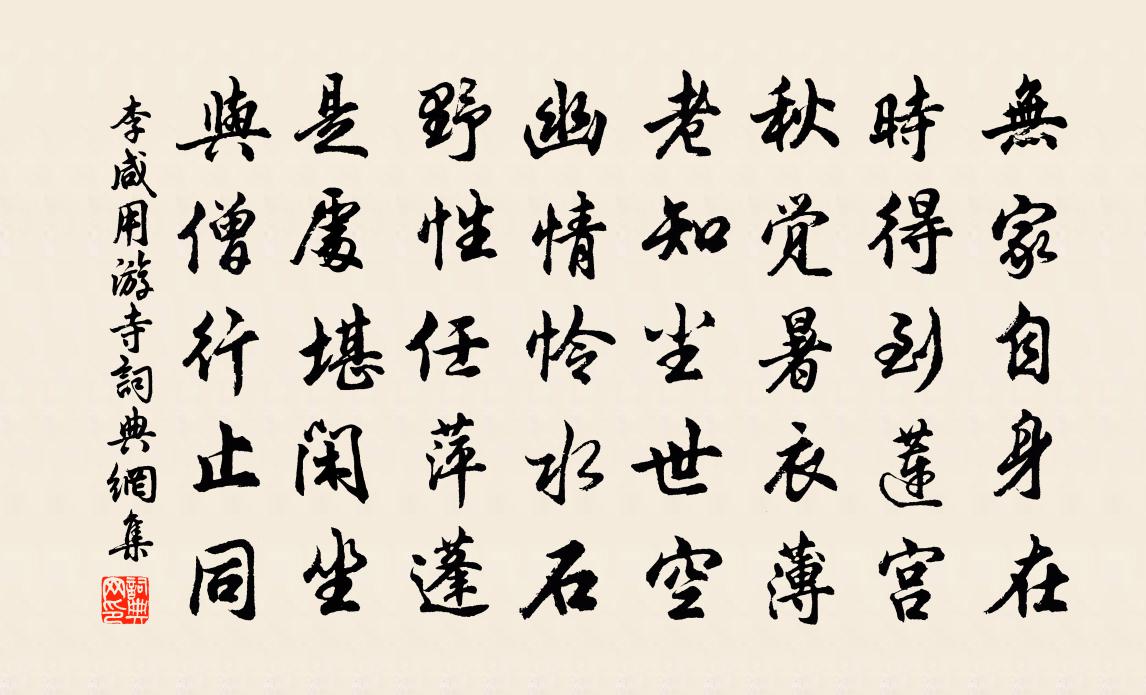 無家自身在
時得到蓮宮
秋覚暑衣薄
老知尘世空
幽情怜水石
野性任萍蓬
是處堪闲坐
與僧行止同
李咸用游寺詞典網集
詞典网印